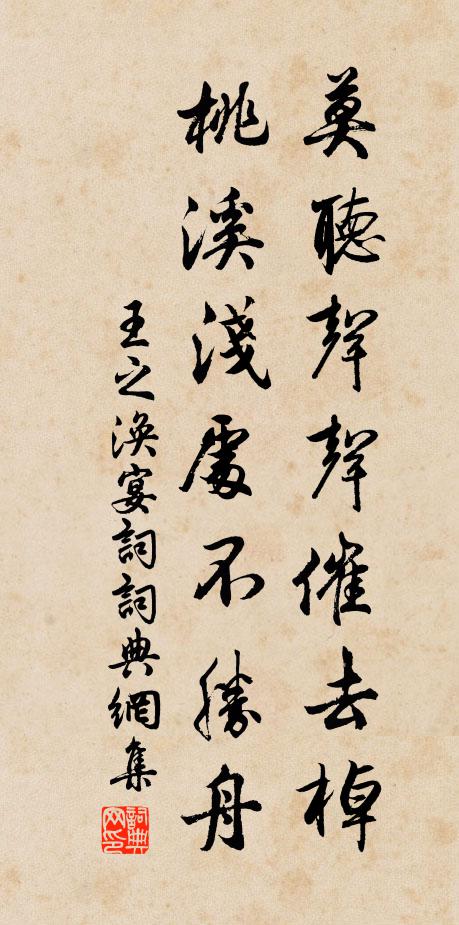 莫聽聲聲催去棹
桃溪淺處不勝舟
王之渙宴詞詞典網集
詞典網印